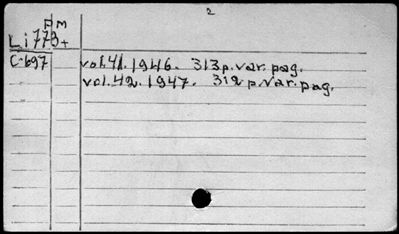 2
pm
Li773+
C-697
vol.41. 1946. 313p.var.pag.
vol.42. 1947. 312 p.var.pag.